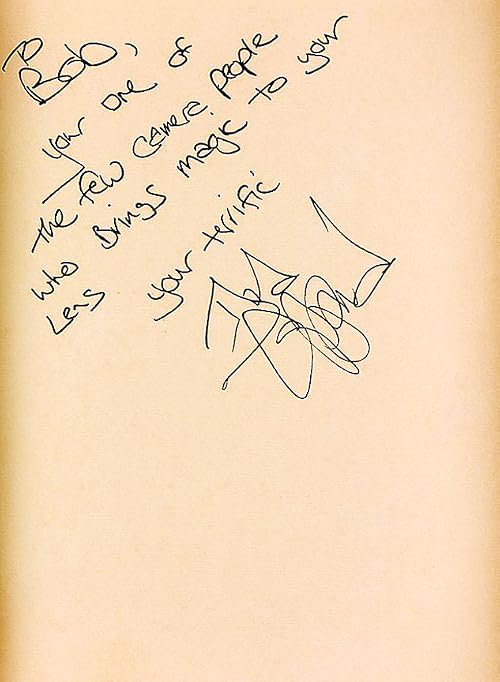 To
Bob,
your one of
the few camera people
who Brings magic to your
Lens
your terrific